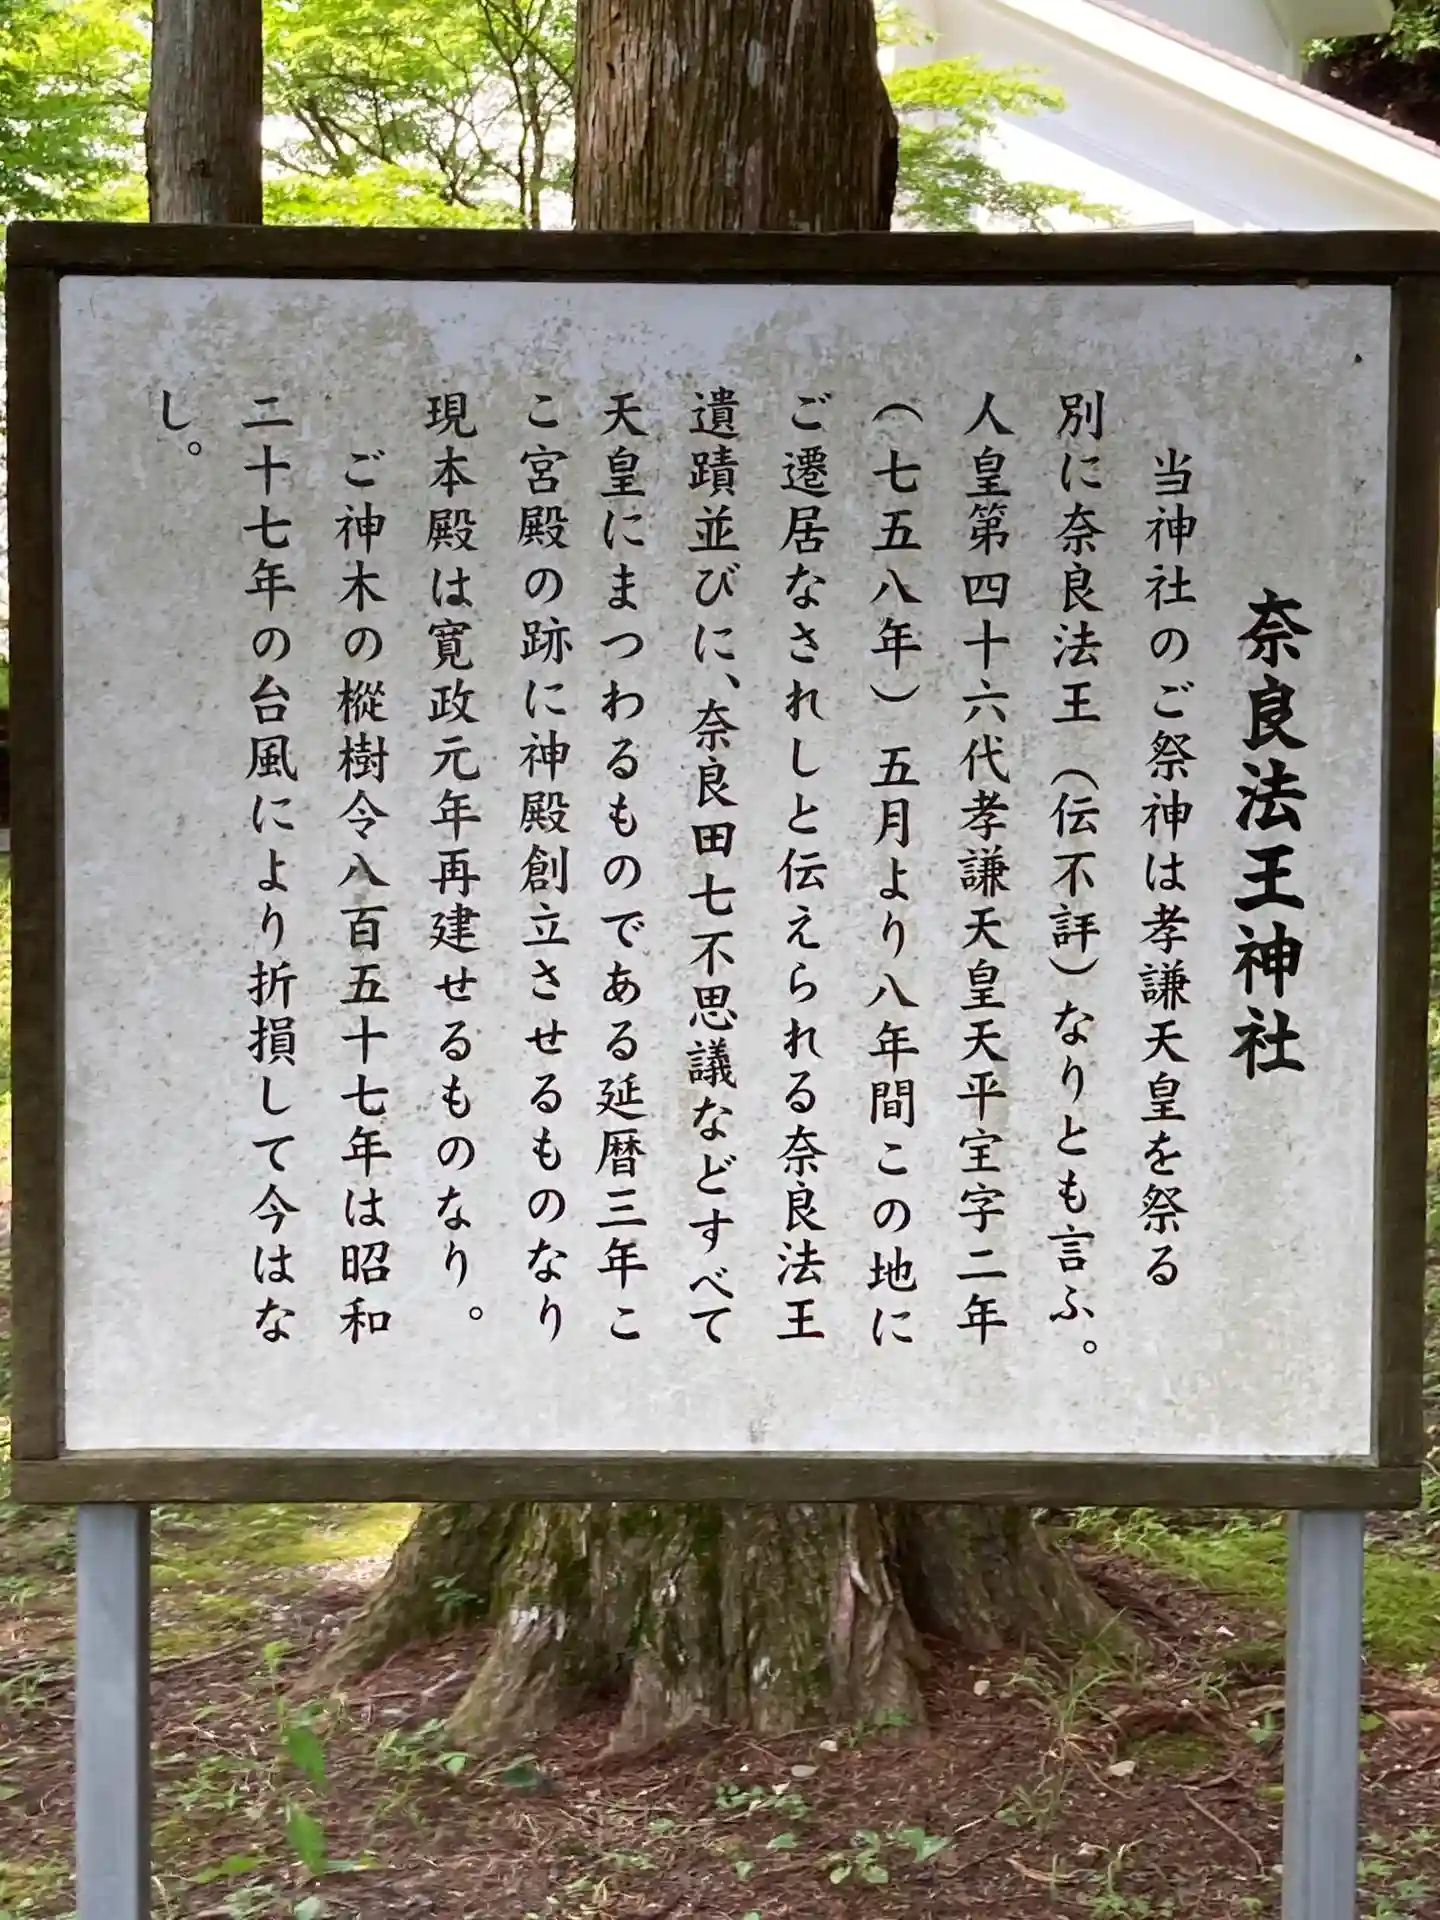 奈良法王神社
当神社のご祭神は孝謙天皇を祭る
別に奈良法王（伝不詳）なりとも言ふ。
人皇第四十六代孝謙天皇天平宝字二年
（七五八年）五月より八年間この地に
ご遷居なされしと伝えられる奈良法王
遺蹟並びに、奈良田七不思議などすべて
天皇にまつわるものである延暦三年こ
こ宮殿の跡に神殿創立させるものなり
現本殿は寛政元年再建せるものなり。
ご神木の樅樹令八百五十七年は昭和
二十七年の台風により折損して今はな
し。